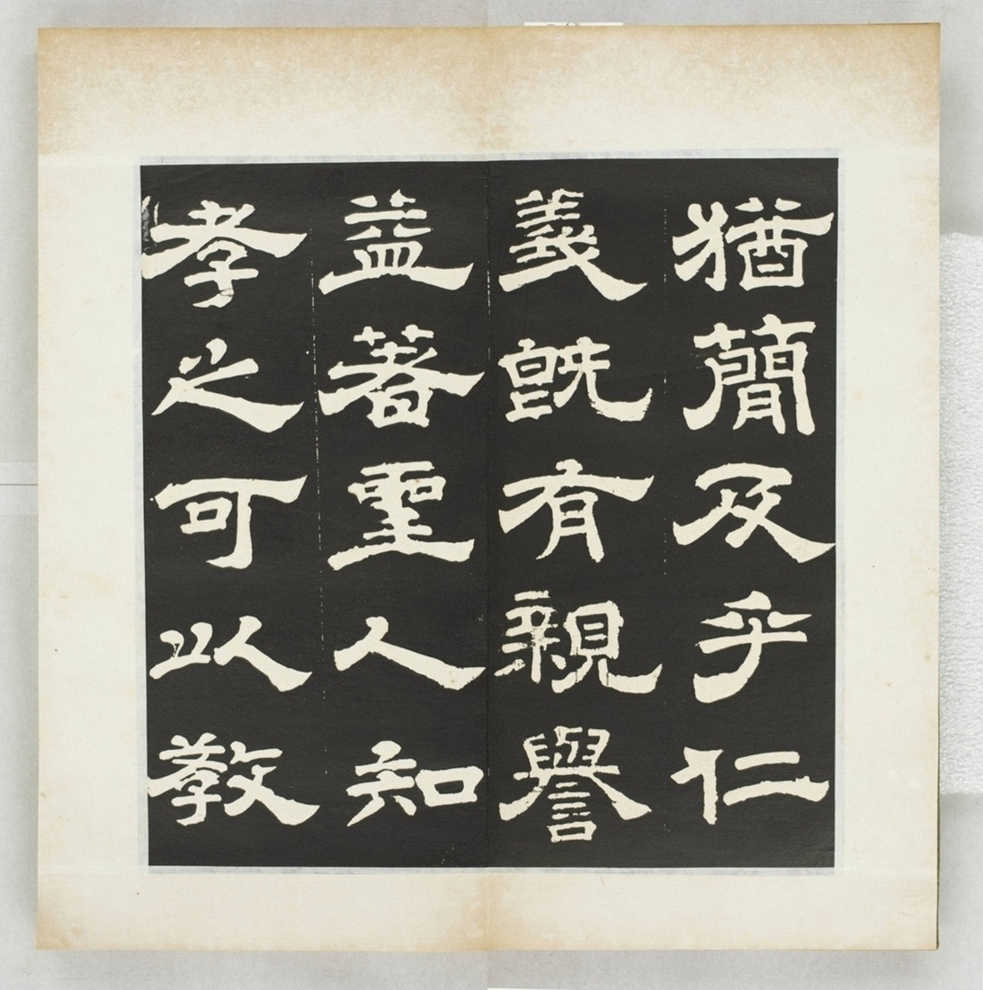 猶簡及乎仁
義既有親譽
益著聖人知
孝之可以教